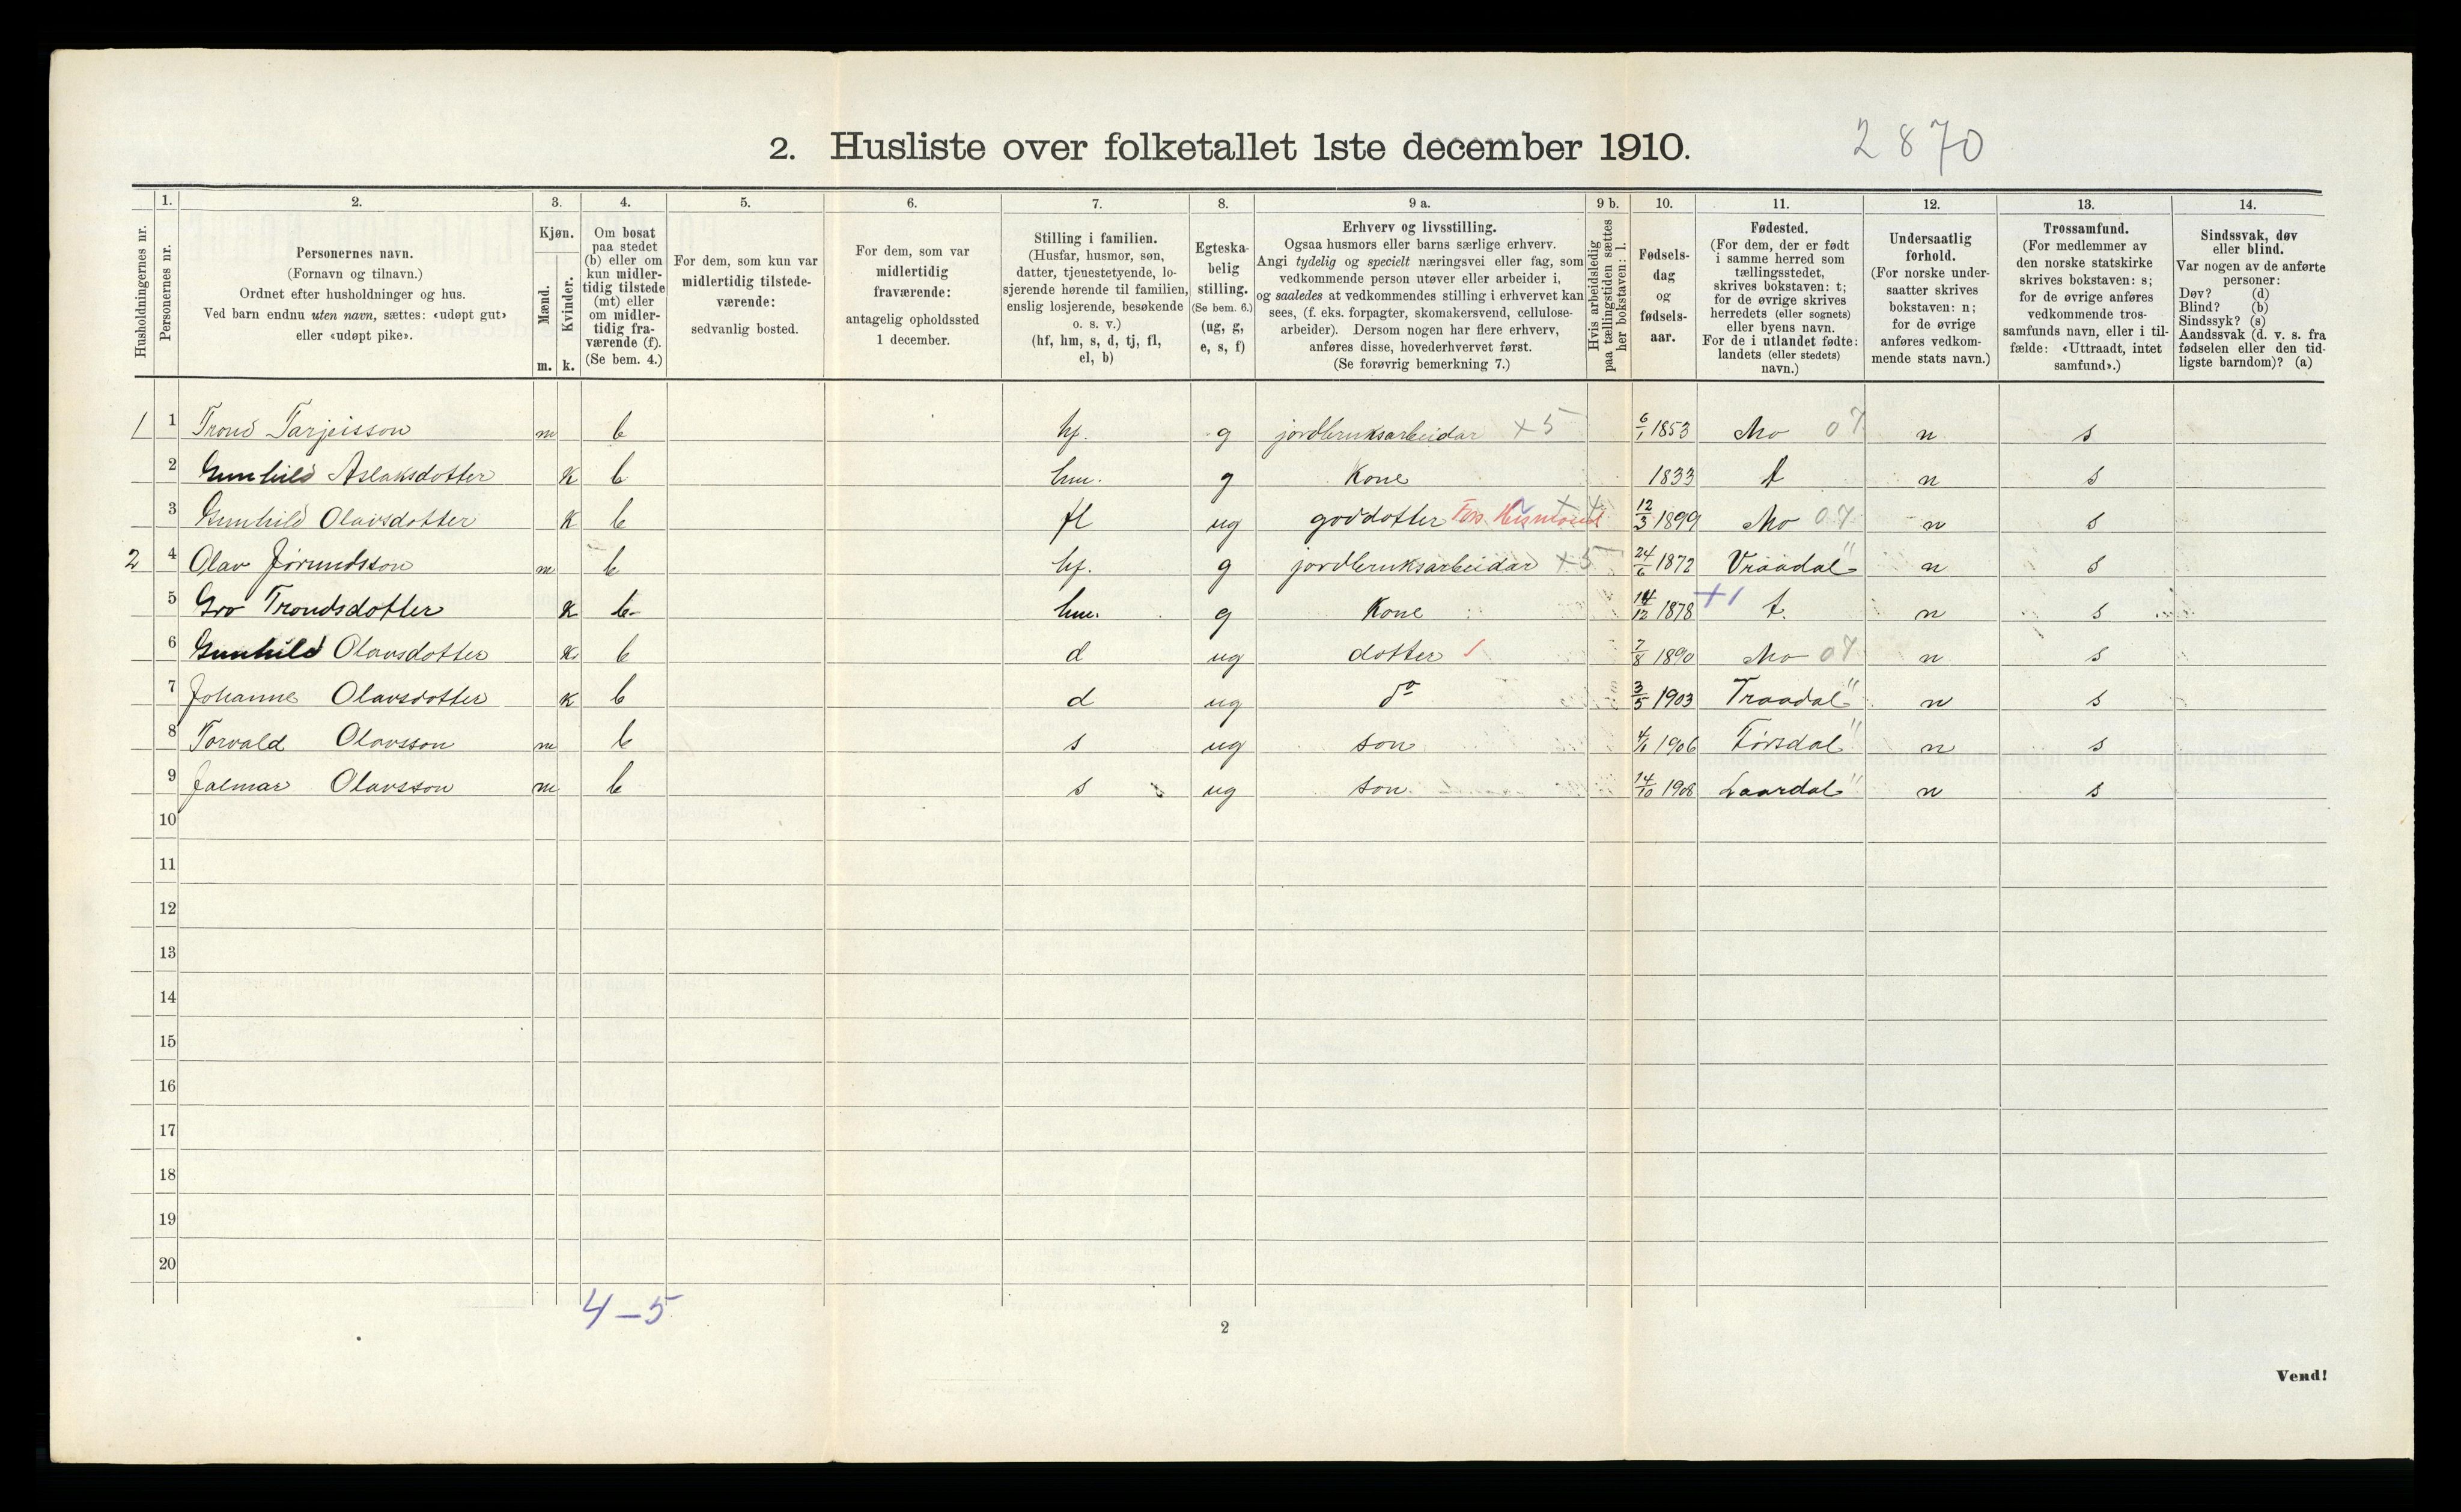 2. Husliste over folketallet 1ste december 1910.
2870
1. 2. 3. 4. 5. 6. 7. 8. 9 a. 9 b. 10. 11. 12. 13. 14.
Husholdningernes nr.
Personernes nr.
Personernes navn.
(Fornavn og tilnavn.)
Ordnet efter husholdninger og hus.
Ved barn endnu uten navn, sættes: «udøpt gut»
eller «udøpt pike».
Kjøn.
Mænd.
Kvinder.
m. k.
Om bosat
paa stedet
(b) eller om
kun midler-
tidig tilstede
(mt) eller
om midler-
tidig fra-
værende (f).
(Se bem. 4.)
For dem, som kun var
midlertidig tilstede-
værende:
sedvanlig bosted.
For dem, som var
midlertidig
fraværende:
antagelig opholdssted
1 december.
Stilling i familien.
(Husfar, husmor, søn,
datter, tjenestetyende, lo-
sjerende hørende til familien,
enslig losjerende, besøkende
o. s. v.)
(hf, hm, s, d, tj, fl,
el, b)
Egteska-
belig
stilling.
(Se bem. 6.)
(ug, g,
e, s, f)
Erhverv og livsstilling.
Ogsaa husmors eller barns særlige erhverv.
Angi tydelig og specielt næringsvei eller fag, som
vedkommende person utøver eller arbeider i,
og saaledes at vedkommendes stilling i erhvervet kan
sees, (f. eks. forpagter, skomakersvend, cellulose-
arbeider). Dersom nogen har flere erhverv,
anføres disse, hovederhvervet først.
(Se forøvrig bemerkning 7.)
Hvis arbeidsledig
paa tællingstiden sættes
her bokstaven: l.
Fødsels-
dag
og
fødsels-
aar.
Fødested.
(For dem, der er født
i samme herred som
tællingsstedet,
skrives bokstaven: t;
for de øvrige skrives
herredets (eller sognets)
eller byens navn.
For de i utlandet fødte:
landets (eller stedets)
navn.)
Undersaatlig
forhold.
(For norske under-
saatter skrives
bokstaven: n;
for de øvrige
anføres vedkom-
mende stats navn.)
Trossamfund.
(For medlemmer av
den norske statskirke
skrives bokstaven: s;
for de øvrige anføres
vedkommende tros-
samfunds navn, eller i til-
fælde: «Uttraadt, intet
samfund».)
Sindssvak, døv
eller blind.
Var nogen av de anførte
personer:
Døv? (d)
Blind? (b)
Sindssyk? (s)
Aandssvak (d. v. s. fra
fødselen eller den tid-
ligste barndom)? (a)
1 1 Trond Tarjeisson m b hf. g jordbruksarbeidar ×5 6/1 1853 Mo 07 n s
2 Gunhild Aslaksdotter k b hm. g Kone 1833 t n s
3 Gunhild Olavsdotter k b fl ug goddotter Fors. 12/3 1899 Mo 07 n s
2 4 Olav Jørundsson m b hf. g jordbruksarbeidar ×5 24/6 1872 Vraadal " n s
5 Gro Trondsdotter k b hm. g Kone 14/12 1878 +1 t. n s
6 Gunhild Olavsdotter k b d ug dotter 7/8 1890 Mo 07 n s
7 Johanne Olavsdotter k b d ug do 3/5 1903 Traadal " n s
8 Torvald Olavsson m b s ug son 4/1 1906 Førsdal " n s
9 Jalmar Olavsson m b s ug son 14/10 1908 Laardal " n s
10
11
12
13
14
15
16
17
18
19
20
4-5
2
Vend!